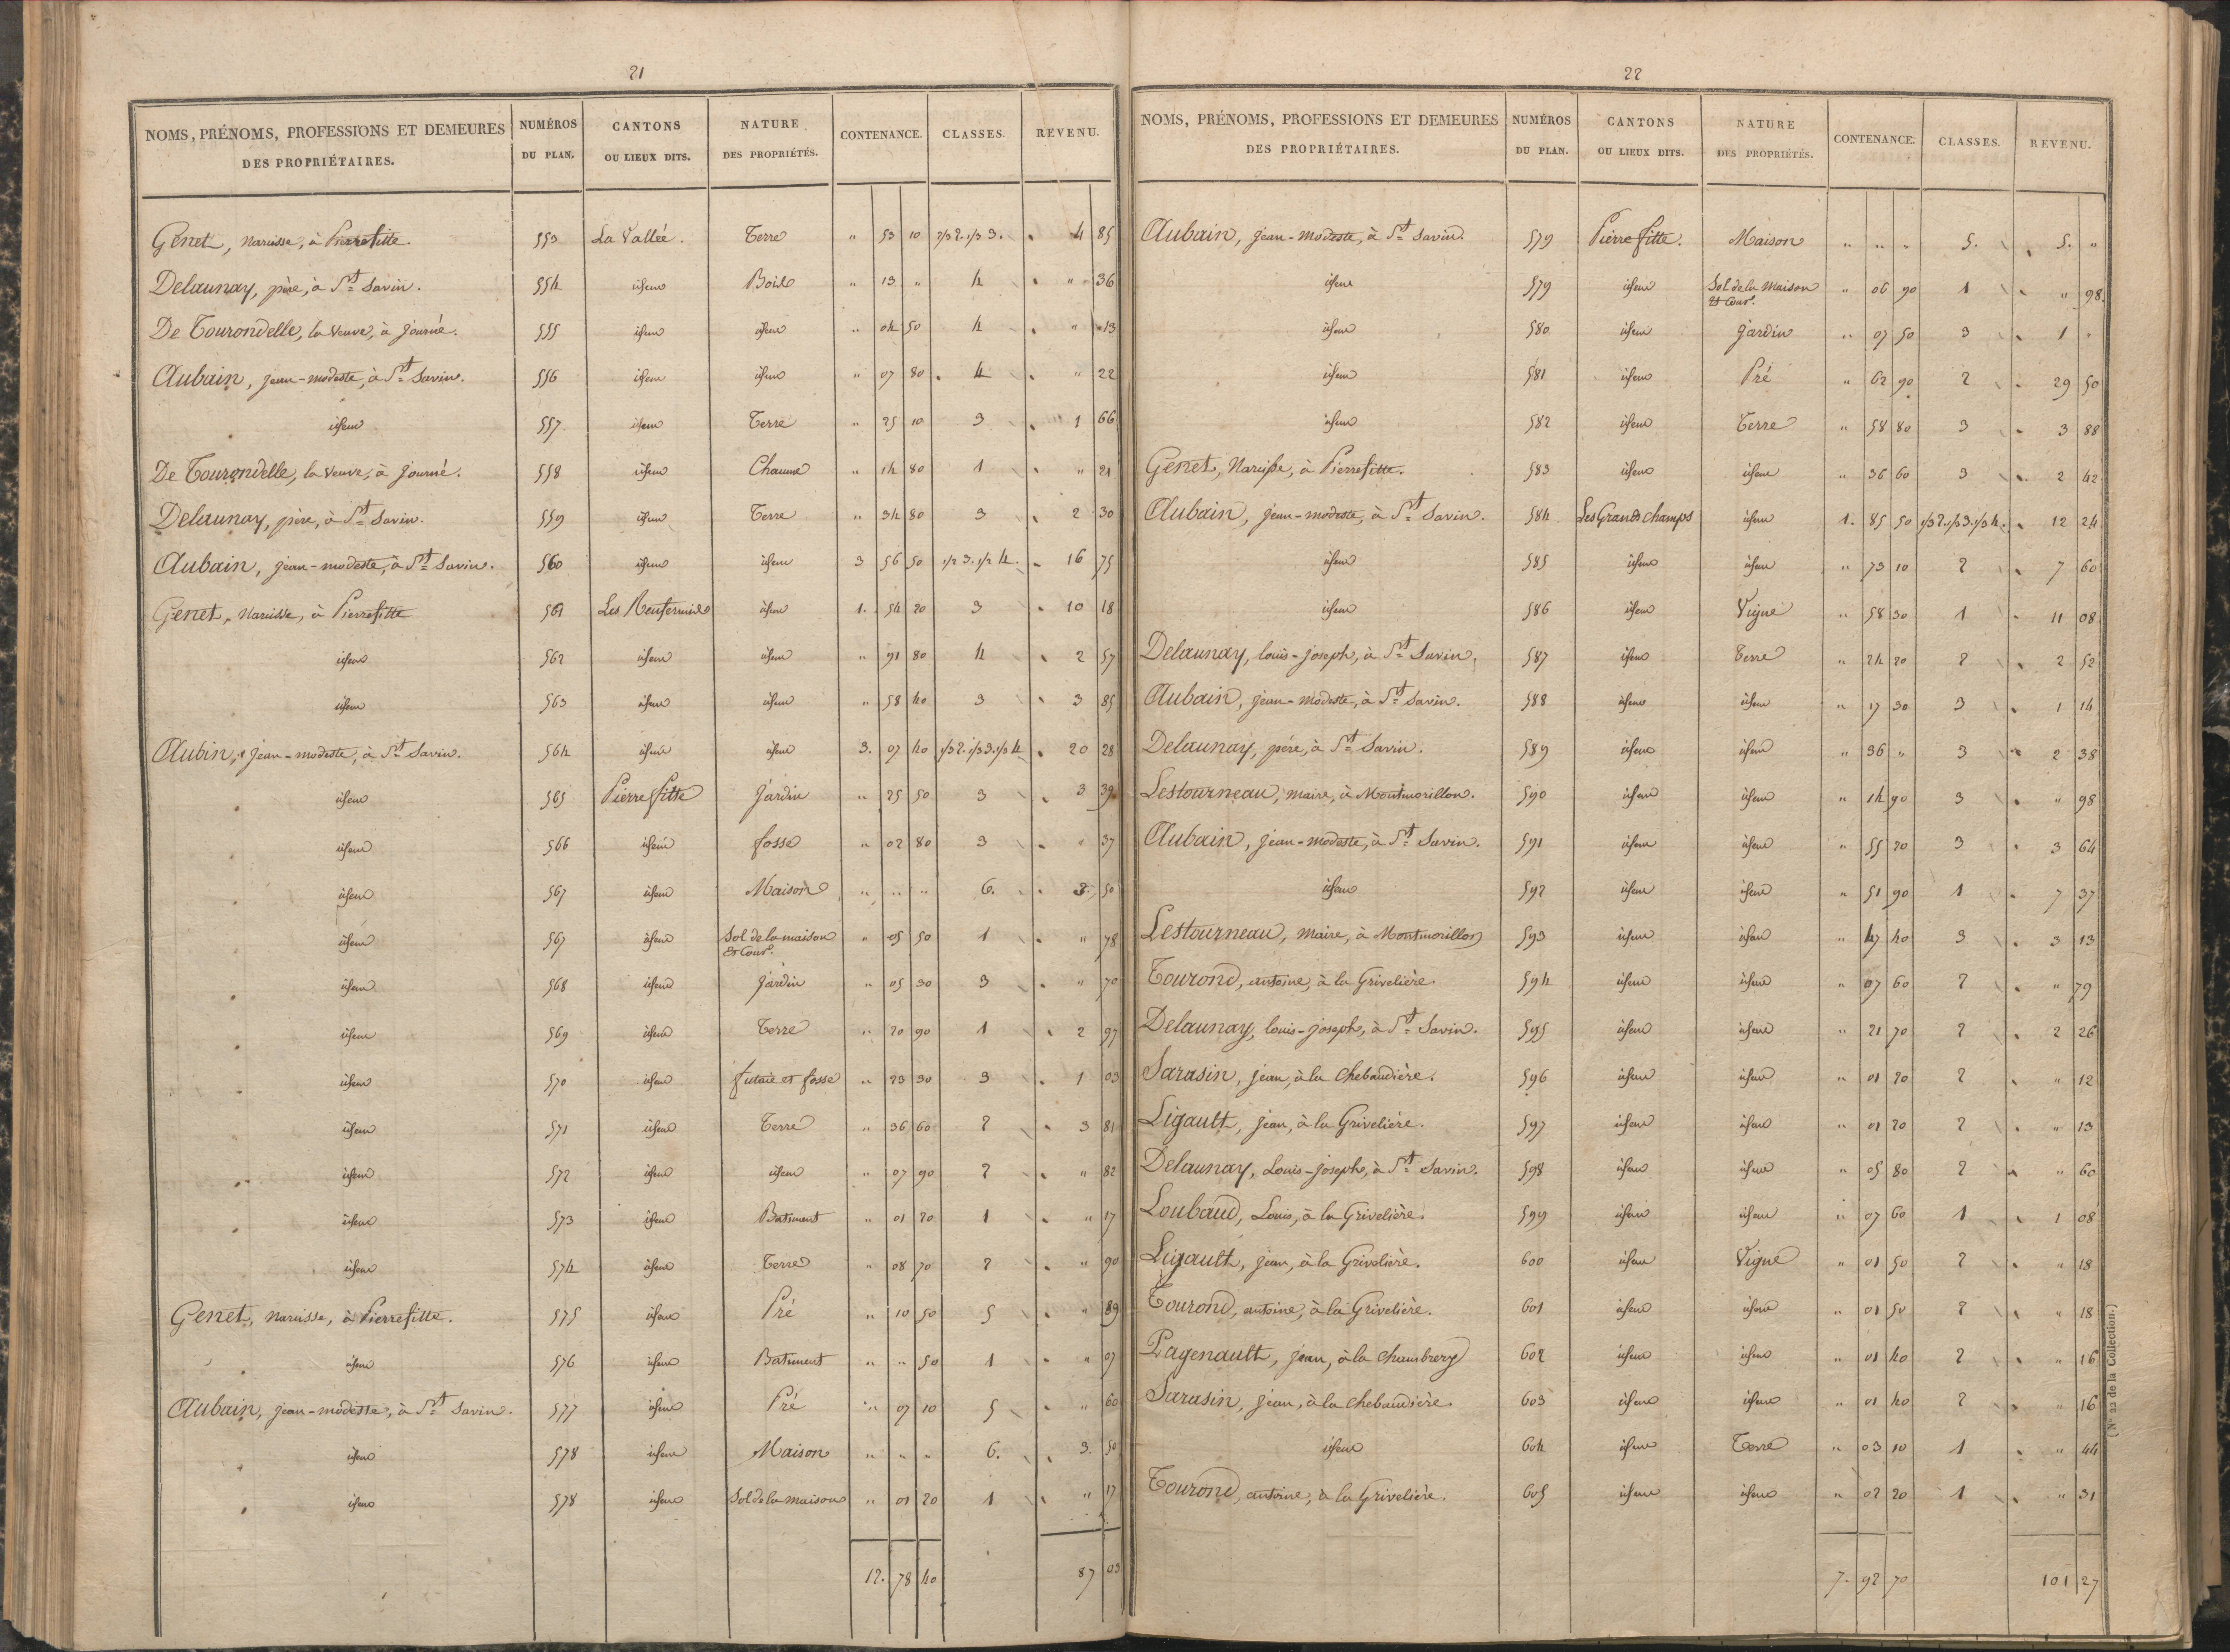 21
NOMS, PRÉNOMS, PROFESSIONS ET DEMEURES DES PROPRIÉTAIRES. NUMÉROS DU PLAN. CANTONS OU LIEUX DITS. NATURE DES PROPRIÉTÉS. CONTENANCE. CLASSES. REVENU.
Genet, Narcisse, à Pierrefitte. 553 La Vallée. Terre " 53 10 2/3 2. 1/3 3. 4 85
Delaunay, père, à St Savin. 554 idem Bois " 13 " 4 " 36
De Tourondelle, la Veuve, à Journé. 555 idem idem " 04 50 4 " 13
Aubain, jean-modeste, à St Savin. 556 idem idem " 07 80 4 " 22
idem 557 idem Terre " 25 10 3 1 66
De Tourondelle, la Veuve, à Journé. 558 idem Chaume " 14 80 1 " 21
Delaunay, père, à St Savin. 559 idem Terre " 34 80 3 2 30
Aubain, jean-modeste, à St Savin. 560 idem idem 3 56 50 1/2 3. 1/2 4. 16 75
Genet, Narcisse, à Pierrefitte 561 Les idem 1. 54 20 3 10 18
idem 562 idem idem " 91 80 4 2 57
idem 563 idem idem " 58 40 3 3 85
Aubin, Jean-modeste, à St Savin. 564 idem idem 3. 07 40 1/3 2. 1/3 3. 1/3 4 20 28
idem 565 Pierrefitte Jardin " 25 50 3 3 39
idem 566 idem fosse " 02 80 3 " 37
idem 567 idem Maison " " " 6. 3 50
idem 567 idem Sol de la maison et Cour. " 05 50 1 " 78
idem 568 idem Jardin " 05 30 3 " 70
idem 569 idem Terre " 20 90 1 2 97
idem 570 idem futaie et fosse " 23 30 3 1 03
idem 571 idem Terre " 36 60 2 3 81
idem 572 idem idem " 07 90 2 " 82
idem 573 idem Batiment " 01 20 1 " 17
idem 574 idem Terre " 08 70 2 " 90
Genet, Narcisse, à Pierrefitte. 575 idem Pré " 10 50 5 " 89
idem 576 idem Batiment " " 50 1 " 07
Aubain, jean-modeste, à St Savin. 577 idem Pré " 07 10 5 " 60
idem 578 idem Maison " " " 6. 3. 50
idem 578 idem Sol de la maison " 01 20 1 " 17
12. 78 40 87 03
22
NOMS, PRÉNOMS, PROFESSIONS ET DEMEURES DES PROPRIÉTAIRES. NUMÉROS DU PLAN. CANTONS OU LIEUX DITS. NATURE DES PROPRIÉTÉS. CONTENANCE. CLASSES. REVENU.
Aubain, jean-modeste, à St Savin. 579 Pierrefitte. Maison " " " 5. 5. "
idem 579 idem Sol de la Maison et Cour. " 06 90 1 " 98.
idem 580 idem Jardin " 07 50 3 1 "
idem 581 idem Pré " 62 90 2 29 50
idem 582 idem Terre " 58 80 3 3 88
Genet, Narcisse, à Pierrefitte. 583 idem idem " 36 60 3 2 42
Aubain, jean-modeste, à St Savin. 584 Les Grands champs idem 1. 85 50 1/3 2. 1/3 3. 1/3 4. 12 24
idem 585 idem idem " 73 10 2 7 60
idem 586 idem Vigne " 58 30 1 11 08
Delaunay, louis-joseph, à St Savin. 587 idem Terre " 24 20 2 2 52
Aubain, jean-modeste, à St Savin. 588 idem idem " 17 30 3 1 14
Delaunay, père, à St Savin. 589 idem idem " 36 " 3 2 38
Lestourneau, maire, à Montmorillon. 590 idem idem " 14 90 3 " 98
Aubain, jean-modeste, à St Savin. 591 idem idem " 55 20 3 3 64
idem 592 idem idem " 51 90 1 7 37
Lestourneau, maire, à Montmorillon 593 idem idem " 47 40 3 3 13
Tourond, antoine, à la Grivelière. 594 idem idem " 07 60 2 " 79
Delaunay, louis-joseph, à St Savin. 595 idem idem " 21 70 2 2 26
Sarasin, jean, à la chebaudière. 596 idem idem " 01 20 2 " 12
Ligault, jean, à la Grivelière. 597 idem idem " 01 20 2 " 13
Delaunay, Louis-joseph, à St Savin. 598 idem idem " 05 80 2 " 60
Loubaud, Louis, à la Grivelière. 599 idem idem " 07 60 1 1 08
Ligault, jean, à la Grivelière. 600 idem Vigne " 01 50 2 " 18
Tourond, antoine, à la Grivelière. 601 idem idem " 01 50 2 " 18
Pagenault, jean, à la 602 idem idem " 01 40 2 " 16
Sarasin, jean, à la chebaudière. 603 idem idem " 01 40 2 " 16
idem 604 idem Terre " 03 10 1 " 44
Tourond, antoine, à la Grivelière. 605 idem idem " 02 20 1 " 31
7. 92 70 101 27
(N° 22 de la Collection.)